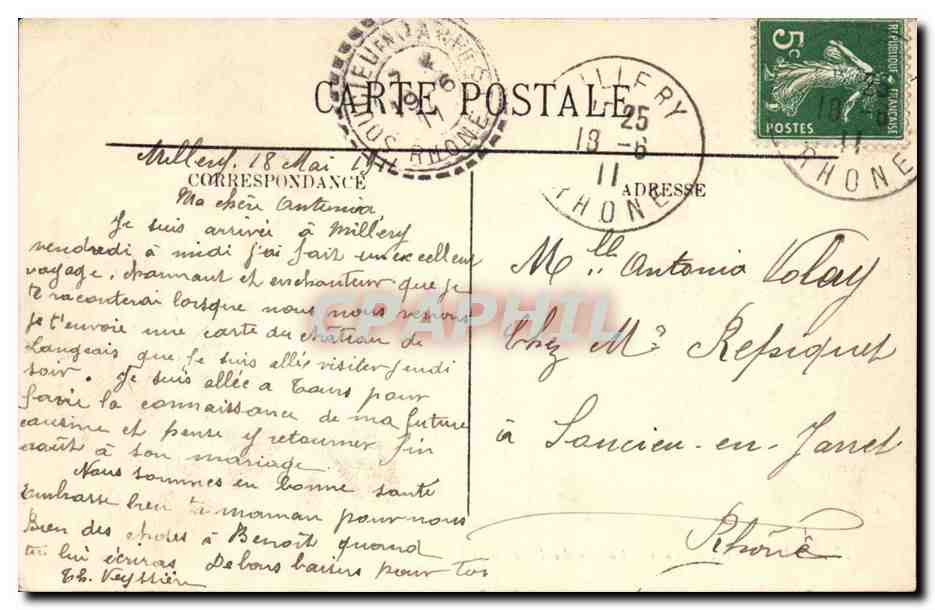 CARTE POSTALE
CORRESPONDANCE
ADRESSE
Millery. 18 Mai 1911
Ma chère Antonia,
Je suis arrivée à Millery
vendredi à midi j'ai fait un excellent
voyage, charmant et enchanteur que je
te raconterai lorsque nous nous verrons
Je t'envoie une carte du château de
Langeais que je suis allée visiter jeudi
soir. Je suis allée à Tours pour
faire la connaissance de ma future
cousine et pense y retourner fin
août à son mariage.
Nous sommes en bonne santé
Embrasse bien ta maman pour nous
Bien des choses à Benoît quand
tu lui écriras De bons baisers pour toi
Th. Veyssière
Mlle Antonia Volay
Chez Mr Repiquet
à Soucieu-en-Jarret
Rhône
MILLERY
25
18 -6
11
RHONE
SOUCIEU EN JARRET
RHONE
5c
REPUBLIQUE FRANCAISE
POSTES
CPAPHIL